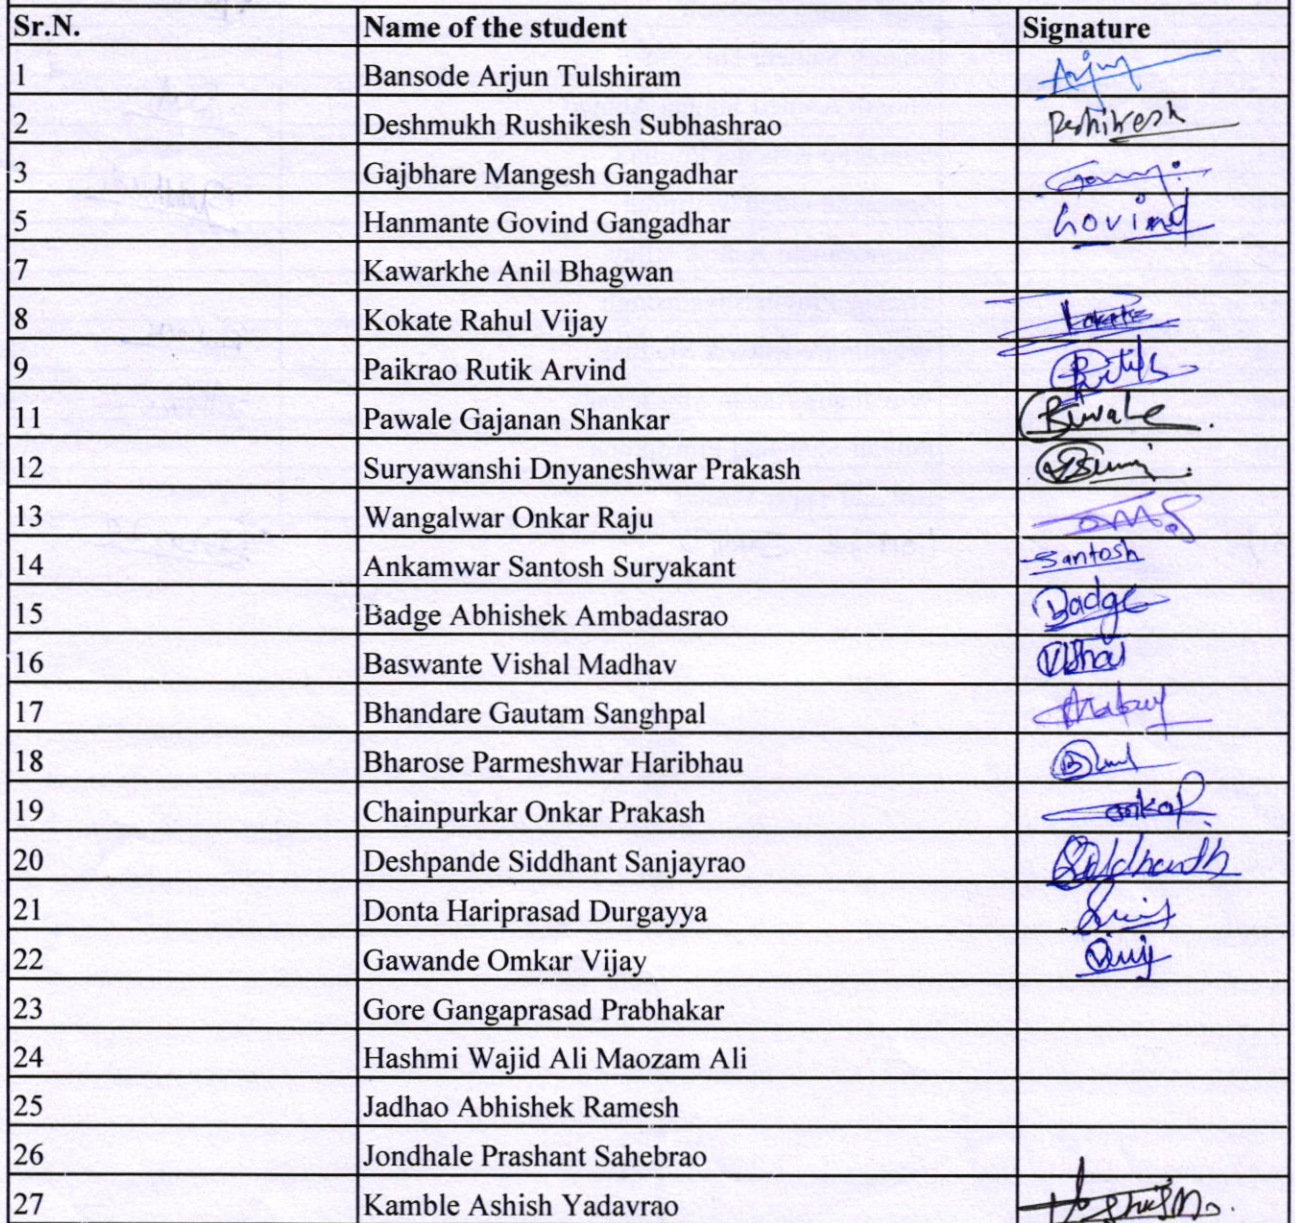 Sr.N. Name of the student Signature
1 Bansode Arjun Tulshiram Arjun
2 Deshmukh Rushikesh Subhashrao
3 Gajbhare Mangesh Gangadhar
5 Hanmante Govind Gangadhar Govind
7 Kawarkhe Anil Bhagwan
8 Kokate Rahul Vijay Kokate
9 Paikrao Rutik Arvind
11 Pawale Gajanan Shankar
12 Suryawanshi Dnyaneshwar Prakash
13 Wangalwar Onkar Raju
14 Ankamwar Santosh Suryakant Santosh
15 Badge Abhishek Ambadasrao Badge
16 Baswante Vishal Madhav
17 Bhandare Gautam Sanghpal
18 Bharose Parmeshwar Haribhau
19 Chainpurkar Onkar Prakash
20 Deshpande Siddhant Sanjayrao
21 Donta Hariprasad Durgayya
22 Gawande Omkar Vijay
23 Gore Gangaprasad Prabhakar
24 Hashmi Wajid Ali Maozam Ali
25 Jadhao Abhishek Ramesh
26 Jondhale Prashant Sahebrao
27 Kamble Ashish Yadavrao